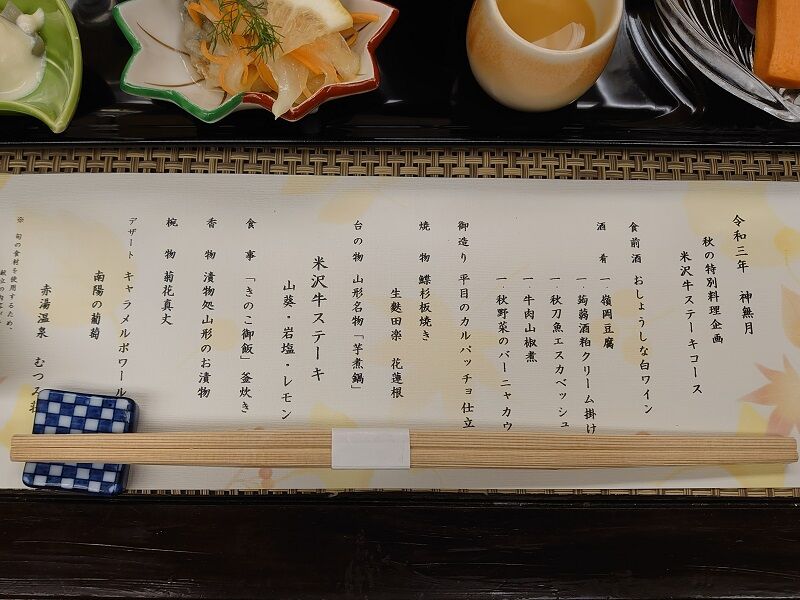 令和三年　神無月
秋の特別料理企画
米沢牛ステーキコース
食前酒　おしょうしな白ワイン
酒　肴　一、嶺岡豆腐
一、蒟蒻酒粕クリーム掛け
一、秋刀魚エスカベッシュ
一、牛肉山椒煮
一、秋野菜のバーニャカウ
御造り　平目のカルパッチョ仕立
焼　物　鰈杉板焼き
生麩田楽　花蓮根
台の物　山形名物「芋煮鍋」
米沢牛ステーキ
山葵・岩塩・レモン
食　事　「きのこ御飯」釜炊き
香　物　漬物処山形のお漬物
椀　物　菊花真丈
デザート　キャラメルポワール
南陽の葡萄
赤湯温泉　むつみ荘
※　旬の食材を使用するため、